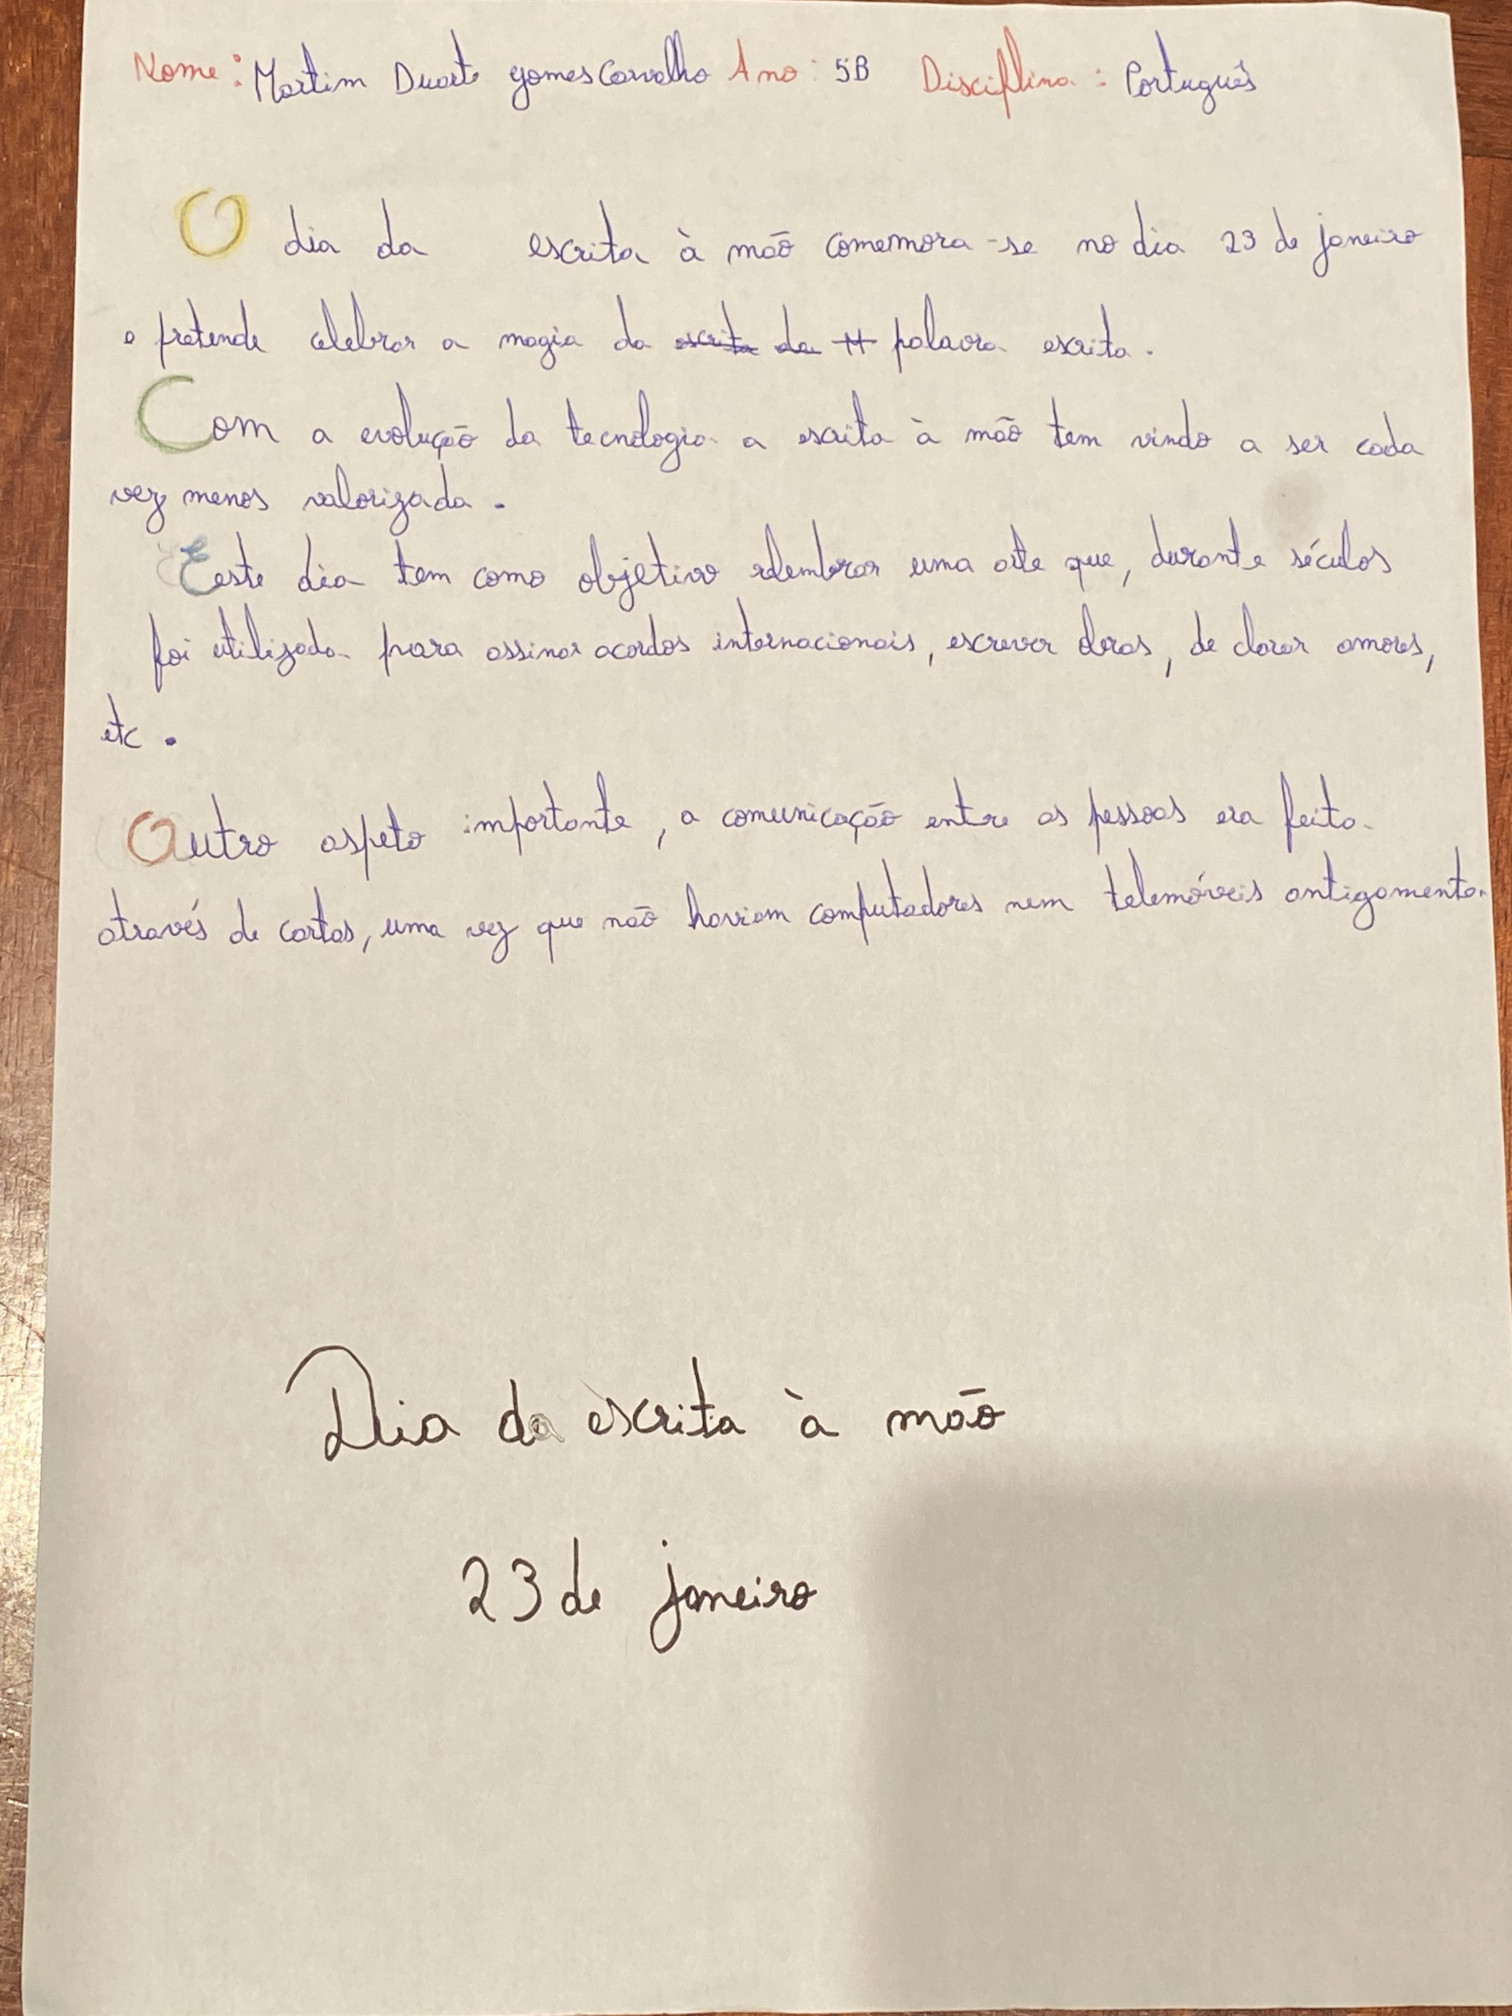 Nome: Martim Duarte gomes Carvalho Ano: 5B Disciplina: Português
O dia da escrita à mão comemora-se no dia 23 de janeiro
e pretende celebrar a magia da escrita da H palavra escrita.
Com a evolução da tecnologia a escrita à mão tem vindo a ser cada
vez menos valorizada.
Eeste dia tem como objetivo relembrar uma arte que, durante séculos
foi utilizada para assinar acordos internacionais, escrever obras, de clarar amores,
etc.
Outro aspeto importante, a comunicação entre as pessoas era feita
através de cartas, uma vez que não haviam computadores nem telemóveis antigamente.
Dia da escrita à mão
23 de janeiro